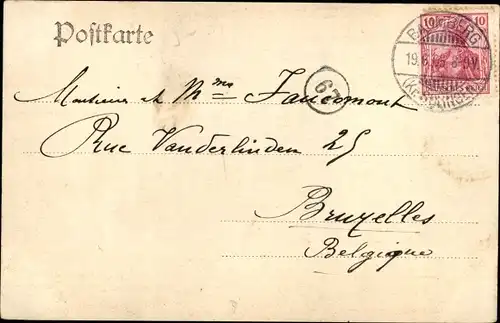 Postkarte
10 10
19.6.
67
Monsieur et Mme Faucomont
Rue Vanderlinden 25
Bruxelles
Belgique